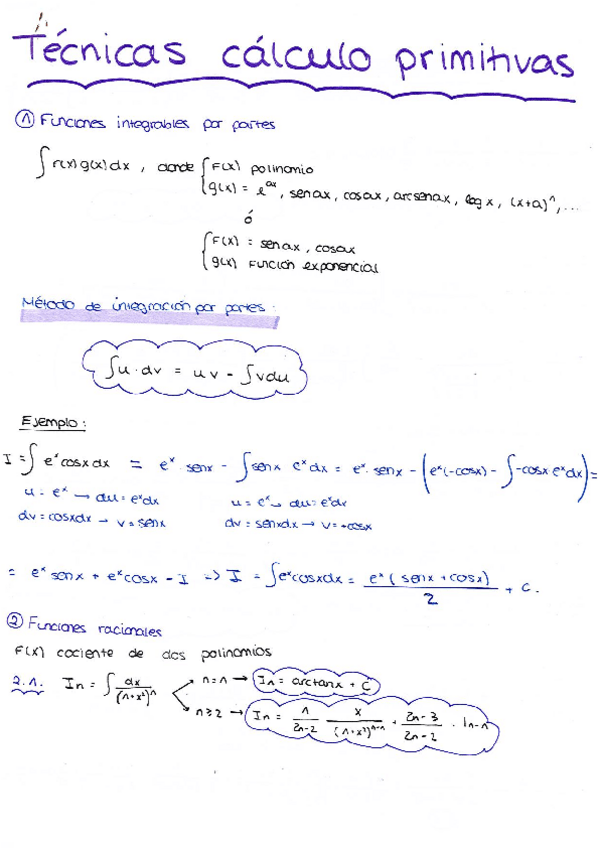 Técnicas cálculo primitivas
① Funciones integrables por partes
∫ F(x) g(x) dx , donde { F(x) polinomio
g(x) = e^ax, sen ax, cos ax, arcsen ax, log x, (x+a)^n, ...
ó
{ F(x) = sen ax, cos ax
g(x) función exponencial
Método de integración por partes:
∫u·dv = uv - ∫vdu
Ejemplo:
I = ∫ e^x cosx dx = e^x · senx - ∫senx e^x dx = e^x · senx - (e^x(-cosx) - ∫-cosx e^x dx) =
u = e^x → du = e^x dx   u = e^x → du = e^x dx
dv = cosxdx → v = senx   dv = senxdx → v = -cosx
= e^x senx + e^x cosx - I => I = ∫e^x cosxdx = e^x (senx + cosx) / 2 + C.
② Funciones racionales
F(x) cociente de dos polinomios
2.1. In = ∫ dx / (1+x²)^n
n=1 → In = arctanx + C
n≥2 → In = 1/(2n-2) x/(1+x²)^n-1 + (2n-3)/(2n-2) · In-1